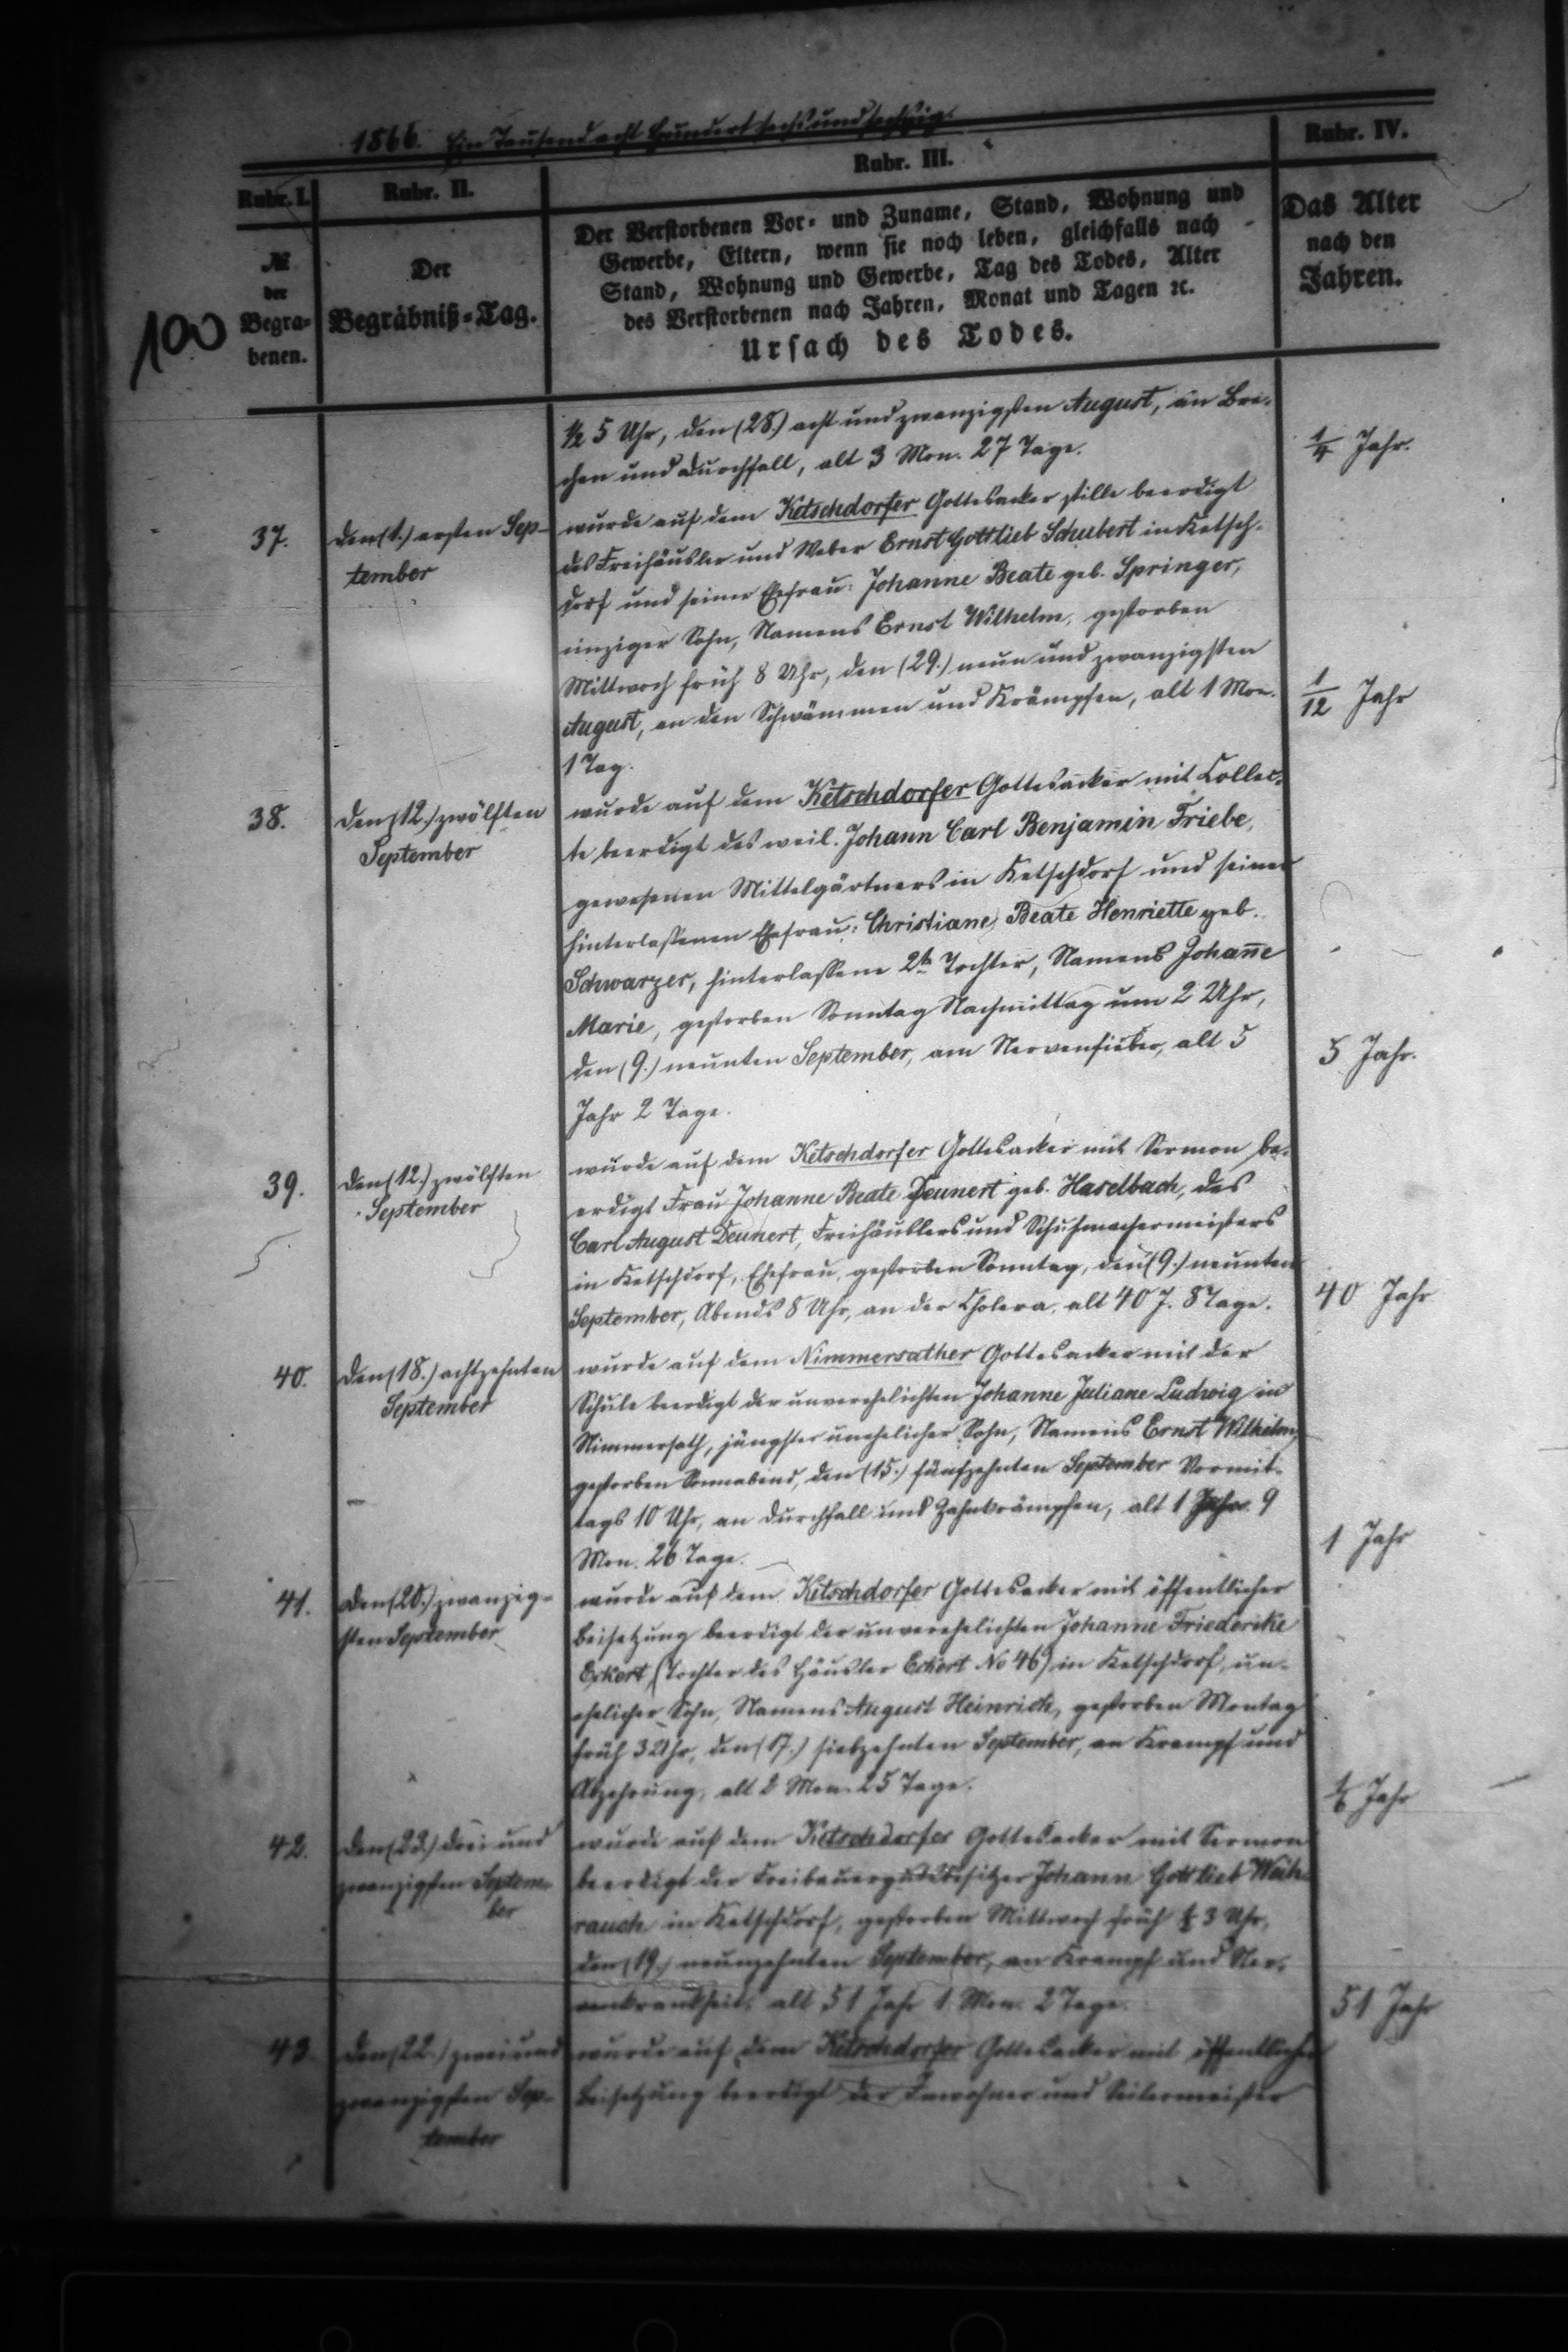 1866. Ein Tausend acht Hundert sechs und sechzig.
Rubr. I.
Rubr. II.
Rubr. III.
Rubr. IV.
№
der
Begra-
benen.
Der
Begräbniß-Tag.
Der Verstorbenen Vor- und Zuname, Stand, Wohnung und
Gewerbe, Eltern, wenn sie noch leben, gleichfalls nach
Stand, Wohnung und Gewerbe, Tag des Todes, Alter
des Verstorbenen nach Jahren, Monat und Tagen ꝛc.
Ursach des Todes.
Das Alter
nach den
Jahren.
100
½ 5 Uhr, den (28.) acht und zwanzigsten August, an Bre-
chen und Durchfall, alt 3 Mon. 27 Tage.
1/4 Jahr.
37.
den (1.) ersten Sep-
tember
wurde auf dem Ketschdorfer Gottesacker stille beerdigt
des Freihäusler und Weber Ernst Gottlieb Schubert in Ketsch-
dorf und seiner Ehefrau: Johanne Beate geb. Springer,
einziger Sohn, Namens Ernst Wilhelm, gestorben
Mittwoch früh 8 Uhr, den (29.) neun und zwanzigsten
August, an den Schwämmen und Krämpfen, alt 1 Mon.
1 Tag.
1/12 Jahr
38.
den (12.) zwölften
September
wurde auf dem Ketschdorfer Gottesacker mit Collec-
te beerdigt des weil. Johann Carl Benjamin Friebe,
gewesenen Mittelgärtners in Ketschdorf und seiner
hinterlassenen Ehefrau: Christiane Beate Henriette geb.
Schwarzer, hinterlassene 2te Tochter, Namens Johan̄e
Marie, gestorben Sonntag Nachmittag um 2 Uhr,
den (9.) neunten September, am Nervenfieber, alt 5
Jahr 2 Tage.
5 Jahr.
39.
den (12.) zwölften
September
wurde auf dem Ketschdorfer Gottesacker mit Sermon be-
erdigt Frau Johanne Beate Deunert geb. Haselbach, des
Carl August Deunert, Freihäuslers und Schuhmachermeisters
in Ketschdorf, Ehefrau, gestorben Sonntag, den (9.) neunten
September, Abends 8 Uhr, an der Cholera, alt 40 J. 8 Tage.
40 Jahr
40.
den (18.) achtzehnten
September
wurde auf dem Nimmersather Gottesacker mit der
Schule beerdigt der unverehelichten Johanne Juliane Ludwig in
Nimmersath, jüngster unehelicher Sohn, Namens Ernst Wilhelm,
gestorben Sonnabend, den (15.) fünfzehnten September Vormit-
tags 10 Uhr, an Durchfall und Zahnkrämpfen, alt 1 Jahr 9
Mon. 26 Tage.
1 Jahr
41.
den (20.) zwanzig-
sten September
wurde auf dem Ketschdorfer Gottesacker mit öffentlicher
Beisetzung beerdigt der unverehelichten Johanne Friederike
Eckert (Tochter des Häusler Eckert No 46) in Ketschdorf, un-
ehelicher Sohn, Namens August Heinrich, gestorben Montag
früh 3 Uhr, den (17.) siebzehnten September, an Krampf und
Abzehrung, alt 2 Mon. 25 Tage.
1/6 Jahr
42.
den (23.) drei und
zwanzigsten Septem-
ber
wurde auf dem Ketschdorfer Gottesacker mit Sermon
beerdigt der Freibauergutsbesitzer Johann Gottlieb Weih-
rauch in Ketschdorf, gestorben Mittwoch früh 3 Uhr,
den (19.) neunzehnten September, an Krampf und Ner-
venkrankheit, alt 51 Jahr 1 Mon. 2 Tage.
51 Jahr
43.
den (22.) zwei und
zwanzigsten Sep-
tember
wurde auf dem Ketschdorfer Gottesacker mit öffentlicher
Beisetzung beerdigt der Inwohner und Seilermeister